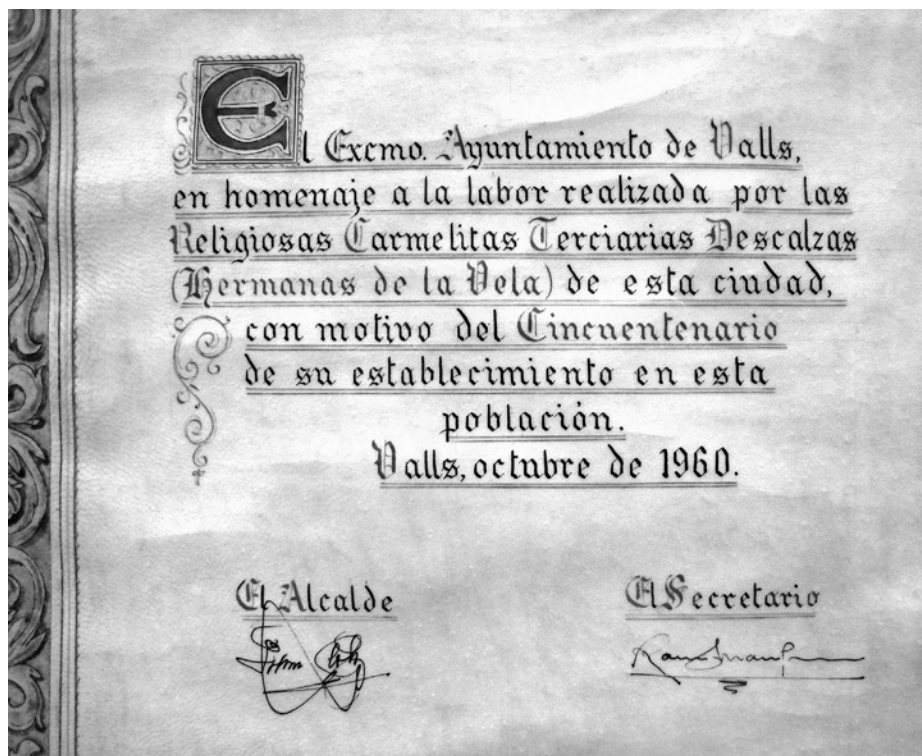 El Excmo. Ayuntamiento de Valls,
en homenaje a la labor realizada por las
Religiosas Carmelitas Terciarias Descalzas
(Hermanas de la Vela) de esta ciudad,
con motivo del Cincuentenario
de su establecimiento en esta
población.
Valls, octubre de 1960.
El Alcalde
El Secretario